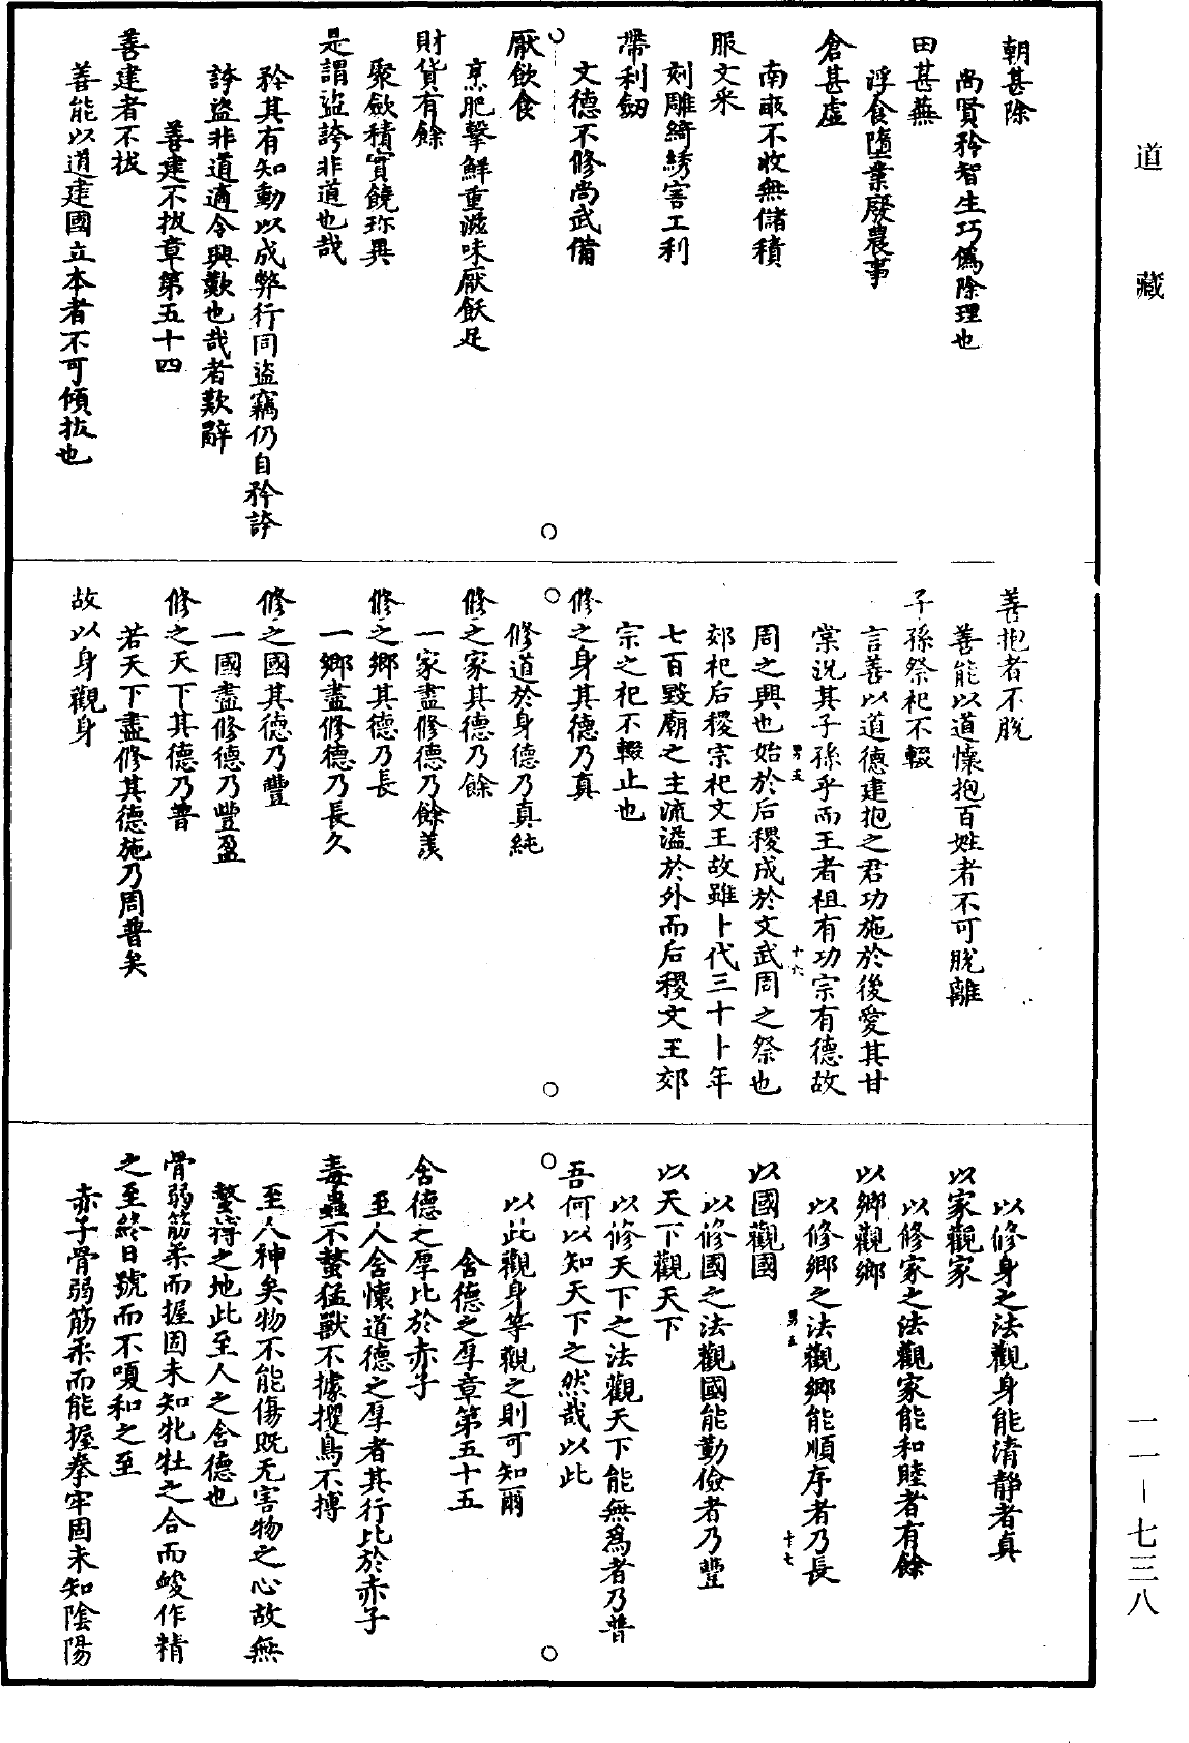 道藏
朝甚除
尚賢矜智生巧僞除理也
田甚蕪
浮食墮業廢農事
倉甚虛
南畝不收無儲積
服文采
刻雕綺綉害工利
帶利劔
文德不修尚武備
厭飲食
烹肥擊鮮重滋味厭飫足
財貨有餘
聚斂積實饒珎異
是謂盜誇非道也哉
矜其有知動以成弊行同盜竊仍自矜誇
誇盜非道適令興歎也哉者歎辭
善建不拔章第五十四
善建者不拔
善能以道建國立本者不可傾拔也
善抱者不脫
善能以道懷抱百姓者不可脫離
子孫祭祀不輟
言善以道德建抱之君功施於後愛其甘
棠況其子孫乎而王者祖有功宗有德故
男五
十六
周之興也始於后稷成於文武周之祭也
郊祀后稷宗祀文王故雖卜代三十卜年
七百毀廟之主流溢於外而后稷文王郊
宗之祀不輟止也
修之身其德乃真
修道於身德乃真純
修之家其德乃餘
一家盡修德乃餘羨
修之鄉其德乃長
一鄉盡修德乃長久
修之國其德乃豐
一國盡修德乃豐盈
修之天下其德乃普
若天下盡修其德施乃周普矣
故以身觀身
以修身之法觀身能清靜者真
以家觀家
以修家之法觀家能和睦者有餘
以鄉觀鄉
以修鄉之法觀鄉能順序者乃長
男五
十七
以國觀國
以修國之法觀國能勤儉者乃豐
以天下觀天下
以修天下之法觀天下能無爲者乃普
吾何以知天下之然哉以此
以此觀身等觀之則可知爾
含德之厚章第五十五
含德之厚比於赤子
至人含懷道德之厚者其行比於赤子
毒蟲不螫猛獸不據攫鳥不搏
至人神矣物不能傷旣无害物之心故無
螫搏之地此至人之含德也
骨弱筋柔而握固未知牝牡之合而峻作精
之至終日號而不嗄和之至
赤子骨弱筋柔而能握拳牢固未知陰陽
一一—七三八